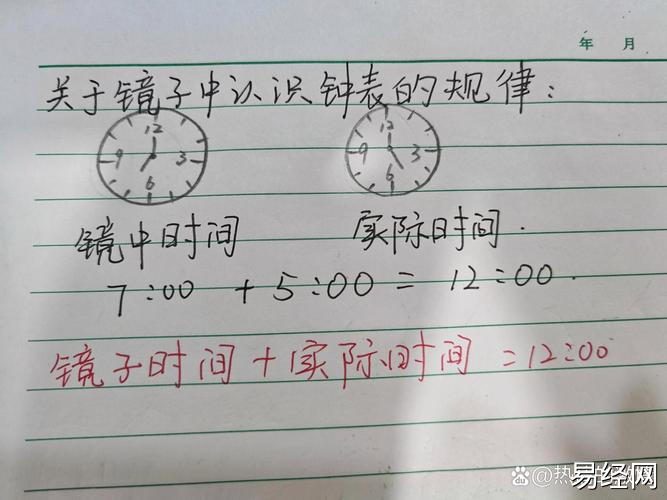 年 月
关于镜子中认识钟表的规律：
12 9 3 6
12 9 3 6
镜中时间 实际时间.
7:00 + 5:00 = 12:00.
镜子时间 + 实际时间 = 12:00
易经网